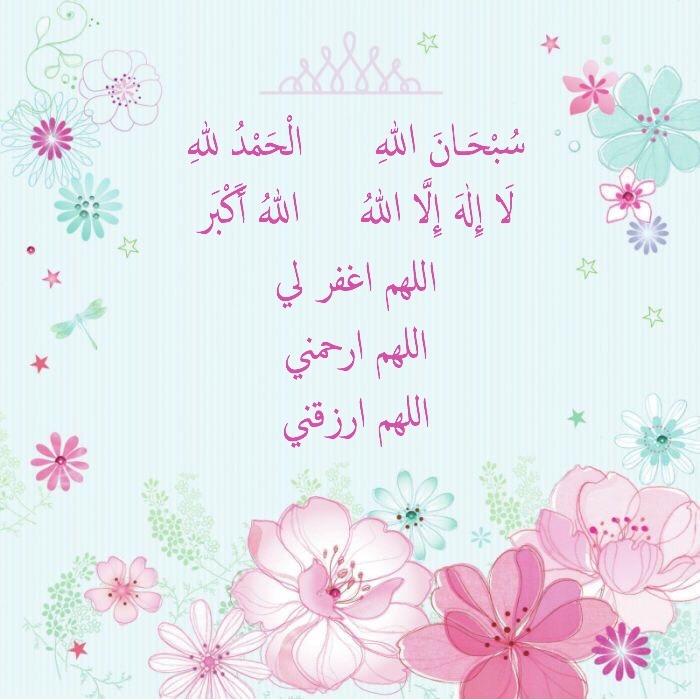 سُبْحَـانَ اللهِ الْحَمْدُ للهِ
لَا إِلٰهَ إِلَّا اللهُ اللهُ أَكْبَر
اللهم اغفر لي
اللهم ارحمني
اللهم ارزقني